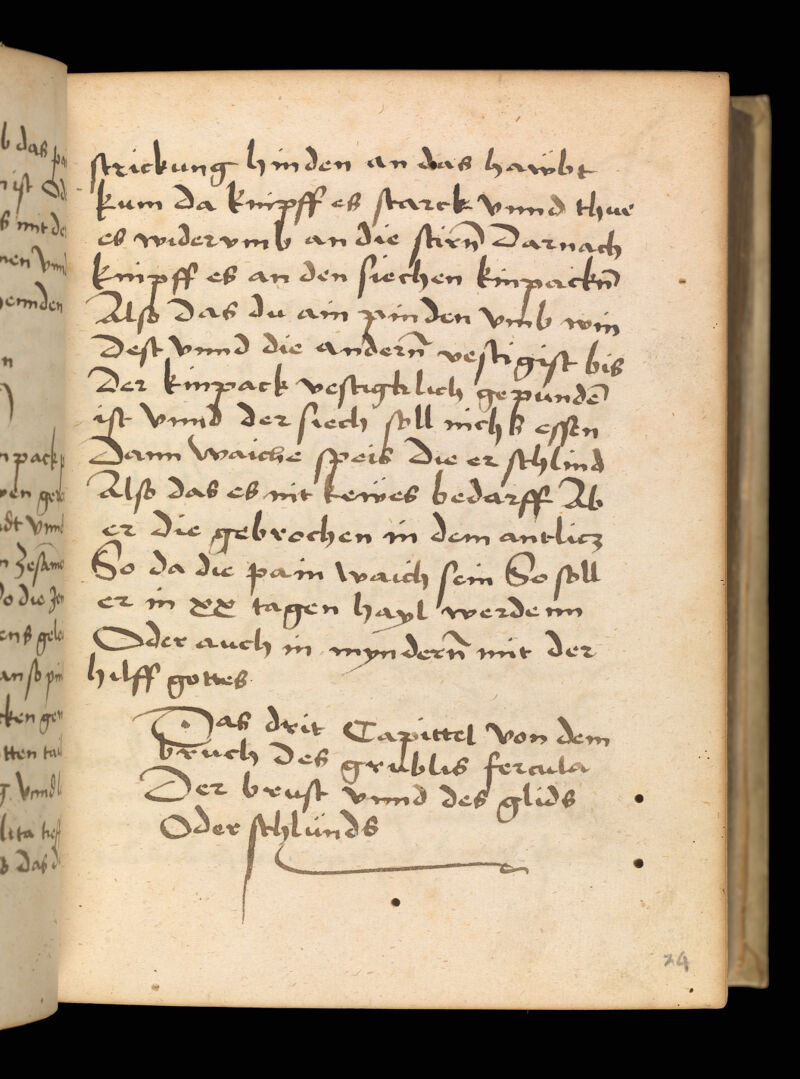 strickung hinden an das hawbt
kum Da knipff es starck vnnd thue
es widervmb an die stirñ Darnach
knipff es an den siechen kinpackñ
Also das du ain pinden vmb win
dest vnnd die anderñ vestigist bis
Der kinpack vestigklich gepundē
ist vnnd der siech soll nichs essen
Dann waiche speis die er schlind
Also das es nit kewes bedarff Ab
er die gebrochen in dem antlicz
So da die pain waich sein So soll
er in xx tagen hayl werdenn
Oder auch in mynderñ mit der
hilff gottes
Das drit Capittel von dem
bruch des grublis fercula
Der brust vnnd des glids
Oder schlünds
24